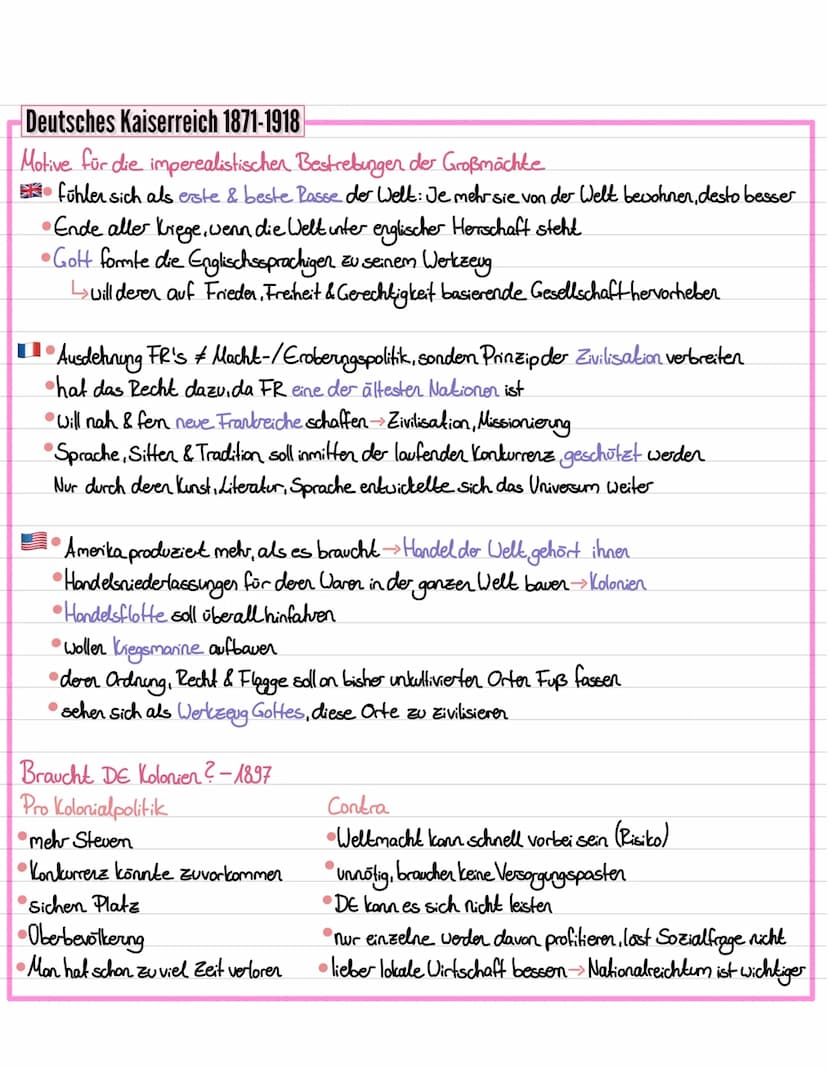 Deutsches Kaiserreich 1871-1918
Motive für die imperealistischen Bestrebungen der Großmächte
• fühlen sich als erste & beste Rasse der Welt: Je mehr sie von der Welt bewohnen, desto besser
• Ende aller Kriege, wenn die Welt unter englischer Herrschaft steht
• Gott formte die Englischssprachigen zu seinem Werkzeug
↳ will deren auf Frieden, Freiheit & Gerechtigkeit basierende Gesellschaft hervorheben
• Ausdehnung FR's ≠ Macht-/Eroberngspolitik, sondern Prinzip der Zivilisation verbreiten
• hat das Recht dazu, da FR eine der ältesten Nationen ist
• will nah & fern neue Frankreiche schaffen → Zivilisation, Missionierung
• Sprache, Sitten & Tradition soll inmitten der laufenden Konkurrenz geschützt werden
Nur durch deren Kunst, Literatur, Sprache entwickelte sich das Universum weiter
• Amerika produziert mehr, als es braucht → Handel der Welt gehört ihnen
• Handelsniederlassungen für deren Waren in der ganzen Welt bauen → Kolonien
• Handelsflotte soll überall hinfahren
• wollen Kriegsmarine aufbauen
• deren Ordnung, Recht & Flagge soll an bisher unkultivierten Orten Fuß fassen
• sehen sich als Werkzeug Gottes, diese Orte zu zivilisieren
Braucht DE Kolonien? - 1897
Pro Kolonialpolitik Contra
• mehr Steuern • Weltmacht kann schnell vorbei sein (Risiko)
• Konkurrenz könnte zuvorkommen • unnötig, brauchen keine Versorgungsposten
• sichern Platz • DE kann es sich nicht leisten
• Überbevölkerung • nur einzelne werden davon profitieren, löst Sozialfrage nicht
• Man hat schon zu viel Zeit verloren • lieber lokale Wirtschaft bessern → Nationalreichtum ist wichtiger